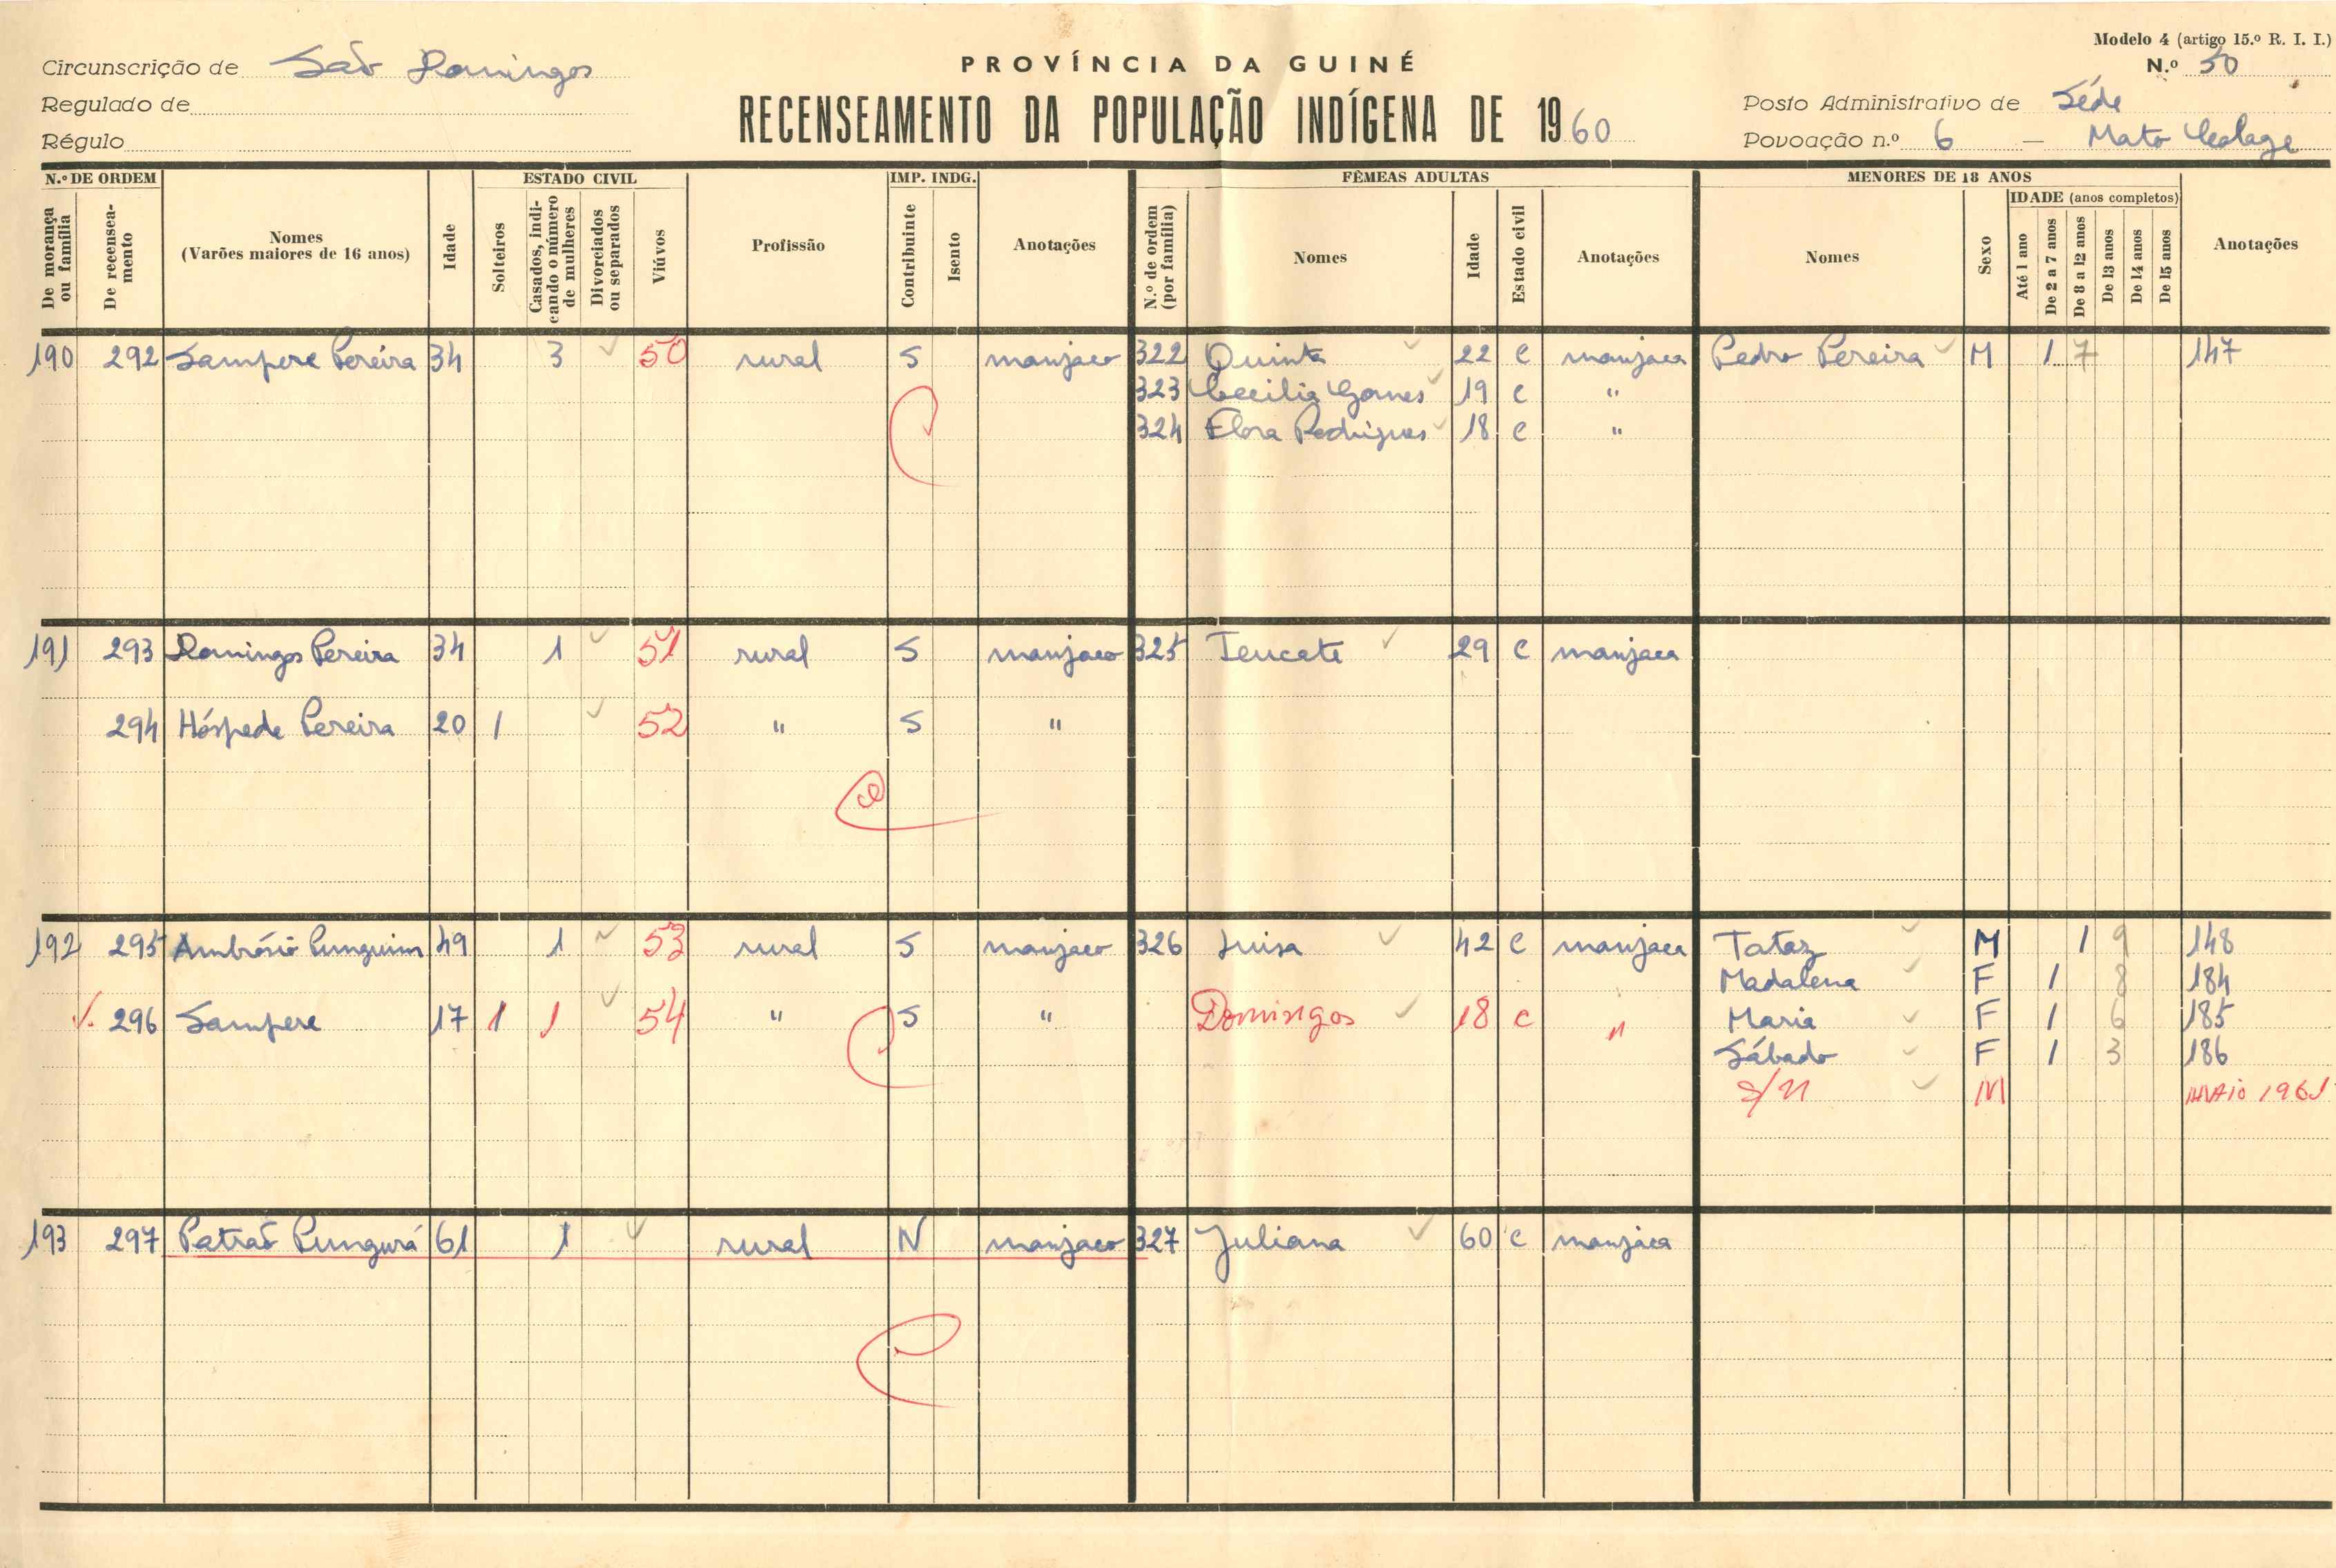 Modelo 4 (artigo 15.º R. I. I.)
Circunscrição de São Domingos
PROVÍNCIA DA GUINÉ
N.º 50
Regulado de
RECENSEAMENTO DA POPULAÇÃO INDÍGENA DE 1960
Posto Administrativo de Séde
Régulo
Povoação n.º 6 — Mato
N.º DE ORDEM
ESTADO CIVIL
IMP. INDG.
FÊMEAS ADULTAS
MENORES DE 18 ANOS
De morança ou família
De recensea-mento
Nomes
(Varões maiores de 16 anos)
Idade
Solteiros
Casados, indi-cando o número de mulheres
Divorciados ou separados
Viúvos
Profissão
Contribuinte
Isento
Anotações
N.º de ordem (por família)
Nomes
Idade
Estado civil
Anotações
Nomes
Sexo
IDADE (anos completos)
Até 1 ano
De 2 a 7 anos
De 8 a 12 anos
De 13 anos
De 14 anos
De 15 anos
Anotações
190 292 Sampere Pereira 34 3 50 rural S manjaco 322 Quinta 22 c manjaca Pedro Pereira M 1 7 147
323 Cecilia Gomes 19 c "
324 Flora Rodrigues 18 c "
191 293 Domingos Pereira 34 1 51 rural S manjaco 325 Teucate 29 c manjaca
294 Hóspede Pereira 20 1 52 " S "
192 295 Ambrósio 49 1 53 rural S manjaco 326 Luisa 42 c manjaca Tataz M 1 9 148
Madalena F 1 8 184
296 Sampere 17 1 1 54 " S " Domingas 18 c " Maria F 1 6 185
Sábado F 1 3 186
S/N M 1961
193 297 Patrão Pungurá 61 1 rural N manjaco 327 Juliana 60 c manjaca